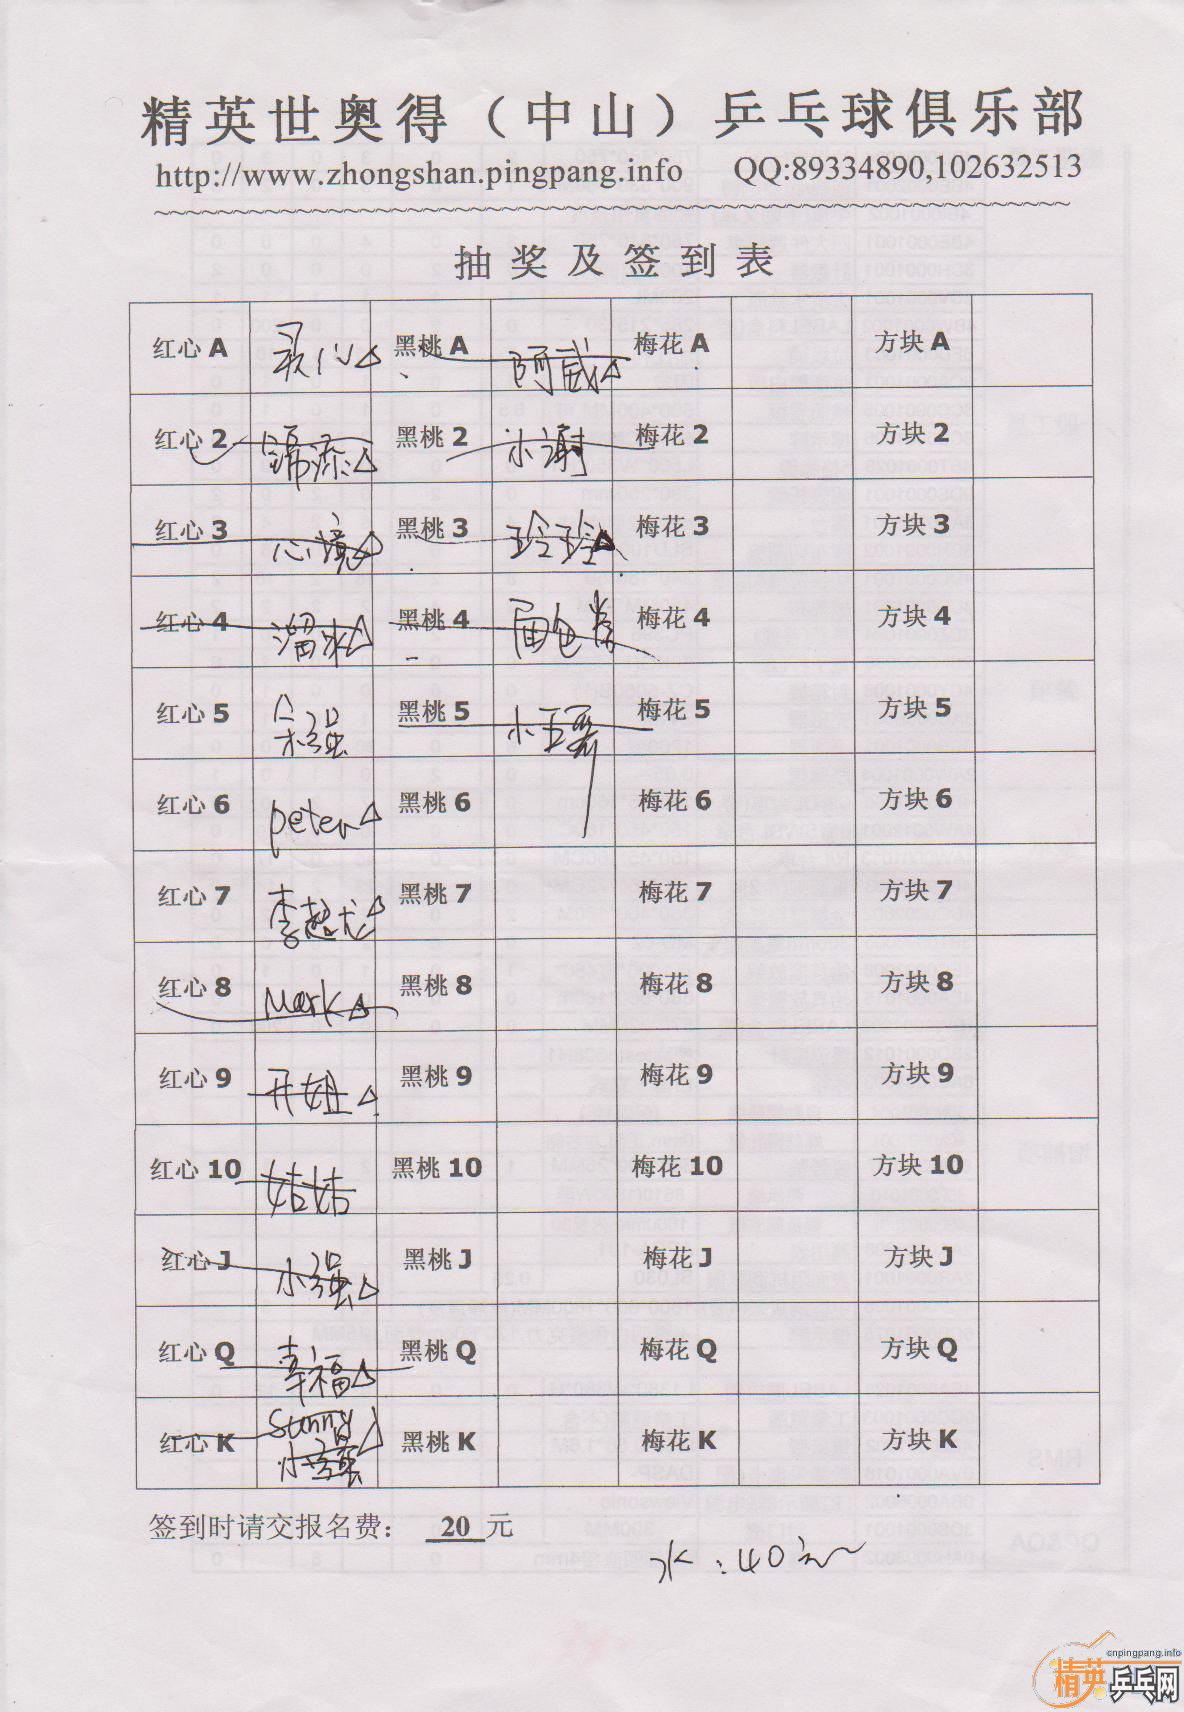 精英世奥得（中山）乒乓球俱乐部
http://www.zhongshan.pingpang.info QQ:89334890,102632513
抽奖及签到表
红心 A 黑桃 A 阿威 梅花 A 方块 A
红心 2 黑桃 2 小谢 梅花 2 方块 2
红心 3 心境 黑桃 3 玲玲 梅花 3 方块 3
红心 4 溜冰 黑桃 4 梅花 4 方块 4
红心 5 黑桃 5 梅花 5 方块 5
红心 6 peter 黑桃 6 梅花 6 方块 6
红心 7 李超龙 黑桃 7 梅花 7 方块 7
红心 8 Mark 黑桃 8 梅花 8 方块 8
红心 9 开姐 黑桃 9 梅花 9 方块 9
红心 10 姑姑 黑桃 10 梅花 10 方块 10
红心 J 小强 黑桃 J 梅花 J 方块 J
红心 Q 幸福 黑桃 Q 梅花 Q 方块 Q
红心 K Sunny 黑桃 K 梅花 K 方块 K
签到时请交报名费： 20 元
水：40元
cnpingpang.info
精英乒乓网